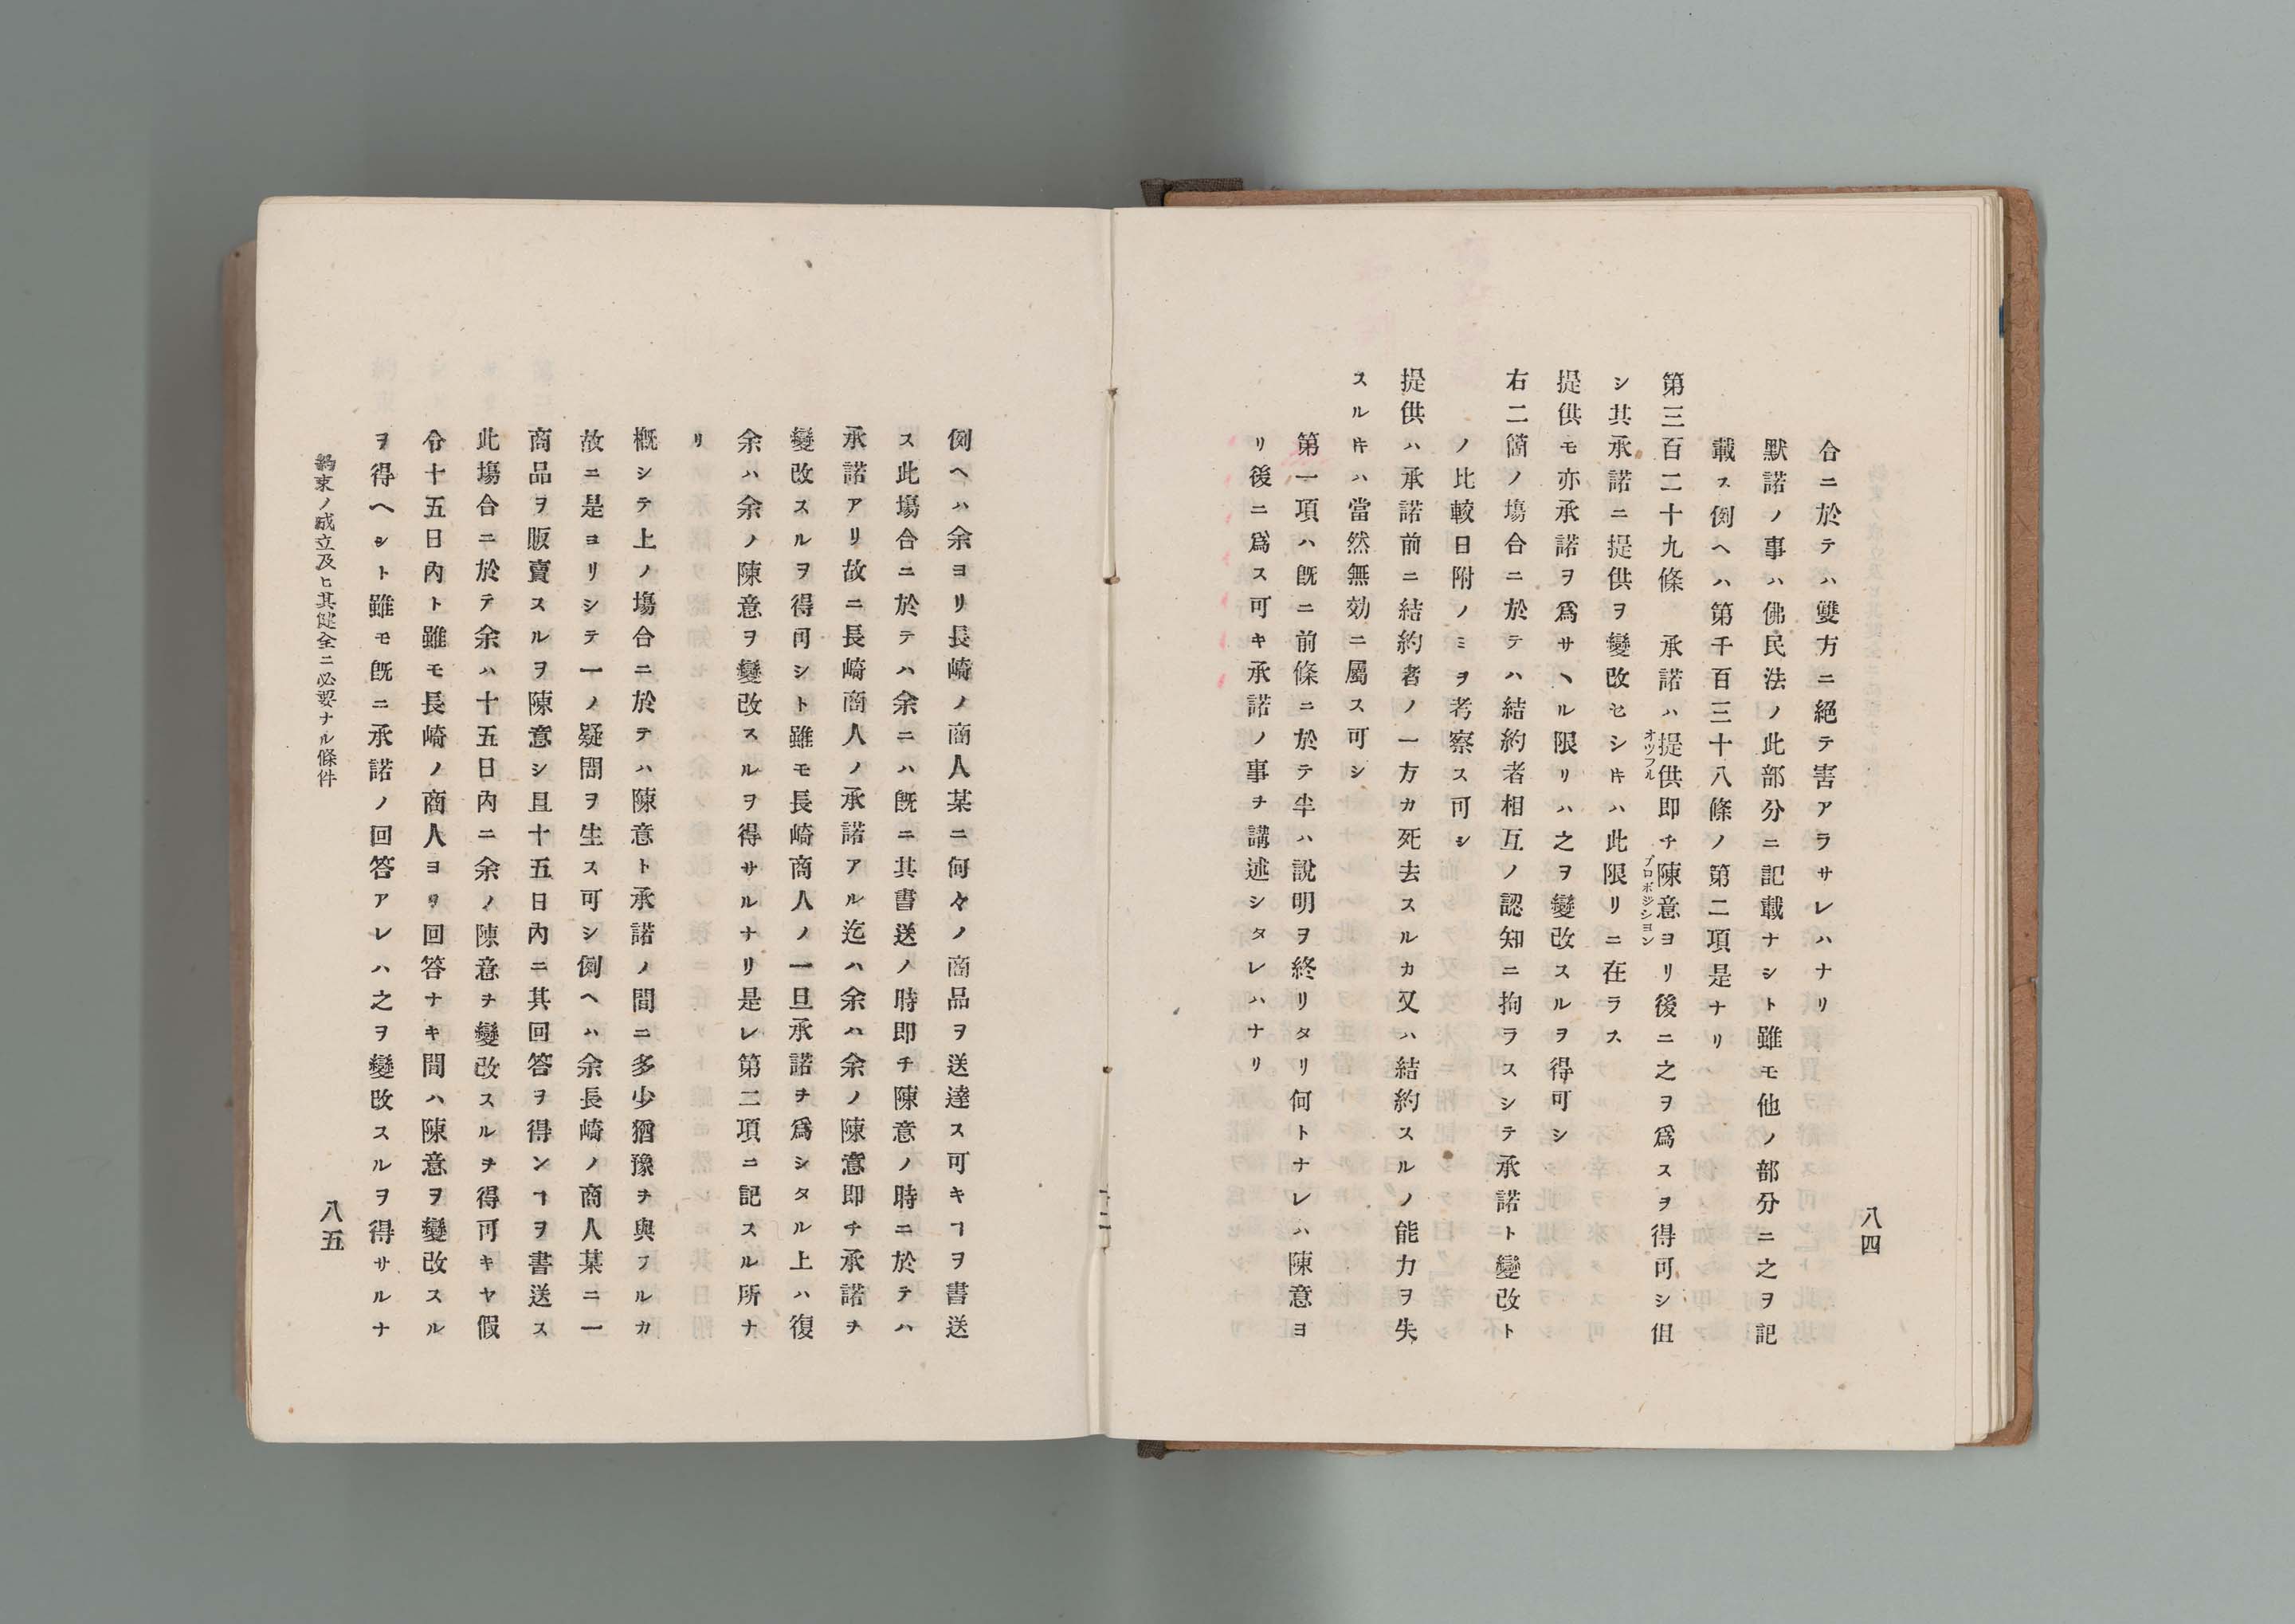 合ニ於テハ雙方ニ絕テ害アラサレハナリ
默諾ノ事ハ佛民法ノ此部分ニ記載ナシト雖モ他ノ部分ニ之ヲ記
載ス例ヘハ第千百三十八條ノ第二項是ナリ
第三百二十九條　承諾ハ提供即チ陳意ヨリ後ニ之ヲ爲スヲ得可シ但
オツフル
プロポジシヨン
シ其承諾ニ提供ヲ變改セシキハ此限リニ在ラス
提供モ亦承諾ヲ爲サヽル限リハ之ヲ變改スルヲ得可シ
右二箇ノ塲合ニ於テハ結約者相互ノ認知ニ拘ヲスシテ承諾ト變改ト
ノ比較日附ノミヲ考察ス可シ
提供ハ承諾前ニ結約者ノ一方カ死去スルカ又ハ結約スルノ能力ヲ失
スルキハ當然無効ニ屬ス可シ
第一項ハ旣ニ前條ニ於テ半ハ說明ヲ終リタリ何トナレハ陳意ヨ
リ後ニ爲ス可キ承諾ノ事チ講述シタレハナリ
八四
例ヘハ余ヨリ長崎ノ商人某ニ何々ノ商品ヲ送達ス可キヿヲ書送
ス此塲合ニ於テハ余ニハ旣ニ其書送ノ時即チ陳意ノ時ニ於テハ
承諾アリ故ニ長崎商人ノ承諾アル迄ハ余ハ余ノ陳意即チ承諾チ
變改スルヲ得可シト雖モ長崎商人ノ一旦承諾チ爲シタル上ハ復
余ハ余ノ陳意ヲ變改スルヲ得サルナリ是レ第二項ニ記スル所ナ
リ
槪シテ上ノ塲合ニ於テハ陳意ト承諾ノ間ニ多少猶豫チ與フルカ
故ニ是ヨリシテ一ノ疑問ヲ生ス可シ例ヘハ余長崎ノ商人某ニ一
商品ヲ販賣スルヲ陳意シ且十五日內ニ其回答ヲ得ンヿヲ書送ス
此塲合ニ於テ余ハ十五日內ニ余ノ陳意チ變改スルチ得可キヤ假
令十五日內ト雖モ長崎ノ商人ヨリ回答ナキ間ハ陳意ヲ變改スル
ヲ得ヘシト雖モ旣ニ承諾ノ回答アレハ之ヲ變改スルヲ得サルナ
約束ノ成立及ヒ其健全ニ必要ナル條件
八五